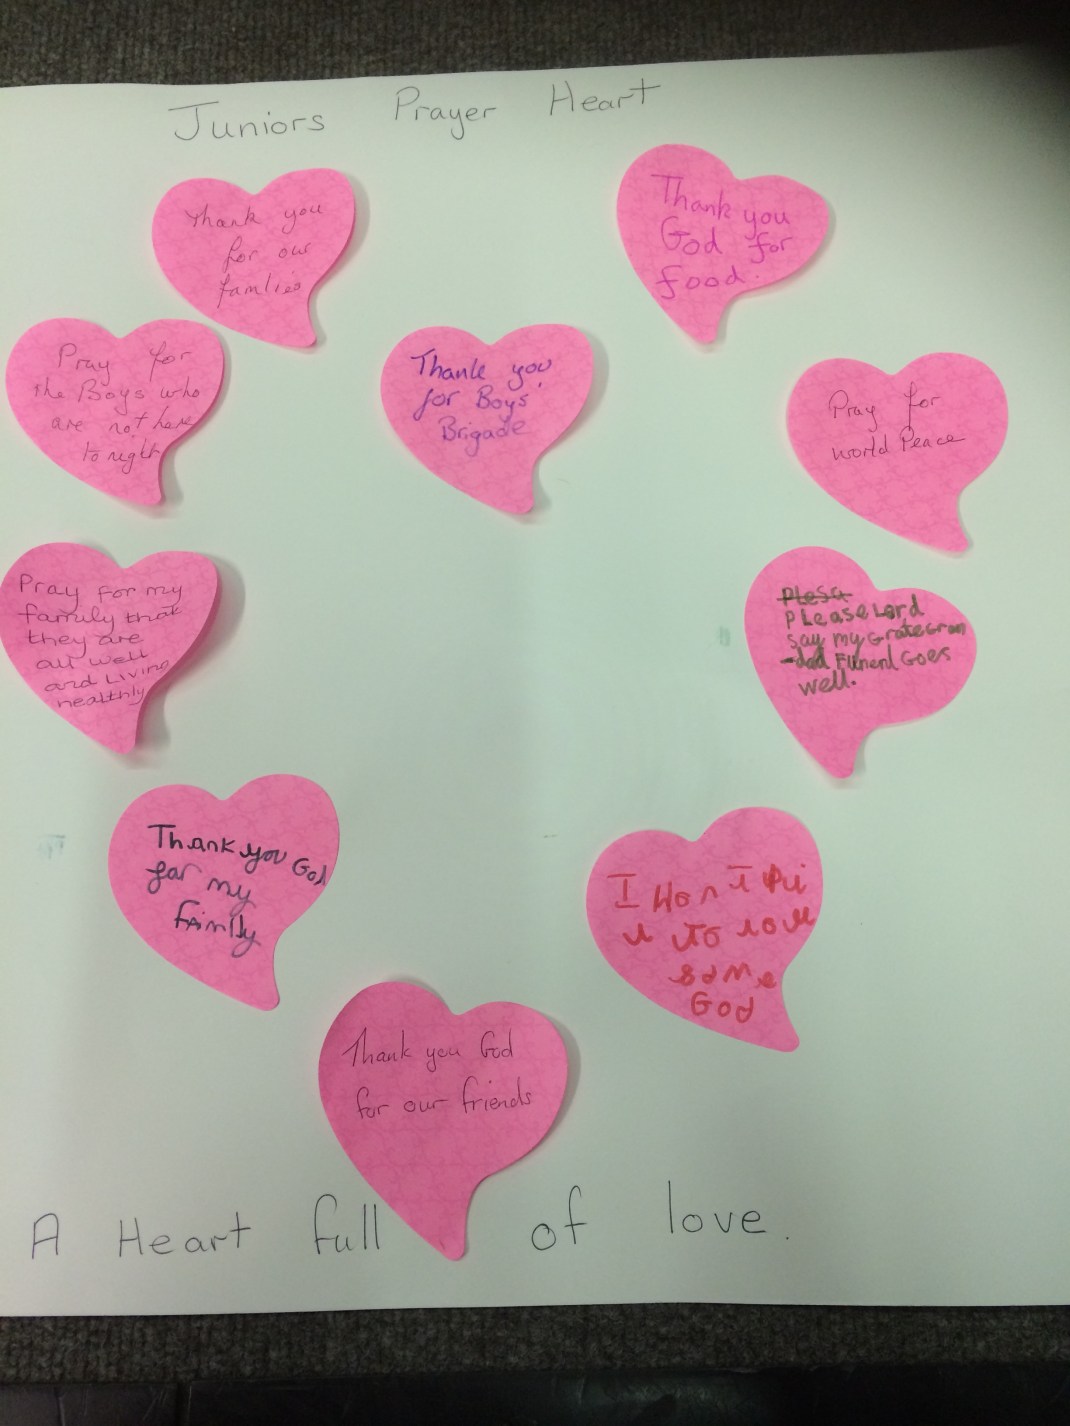 Juniors Prayer Heart
Thank you
for our
famlies
Thank you
God for
food.
Pray for
the Boys who
are not here
to night
Thank you
for Boys'
Brigade
Pray for
world Peace
Pray for my
family that
they are
all well
and Living
healthly
PLesa
PLease Lord
say my Grate Gran
-dad Funenl Goes
well.
Thank you God
for my
Family
I
to
some
God
Thank you God
for our friends
A Heart full of love.